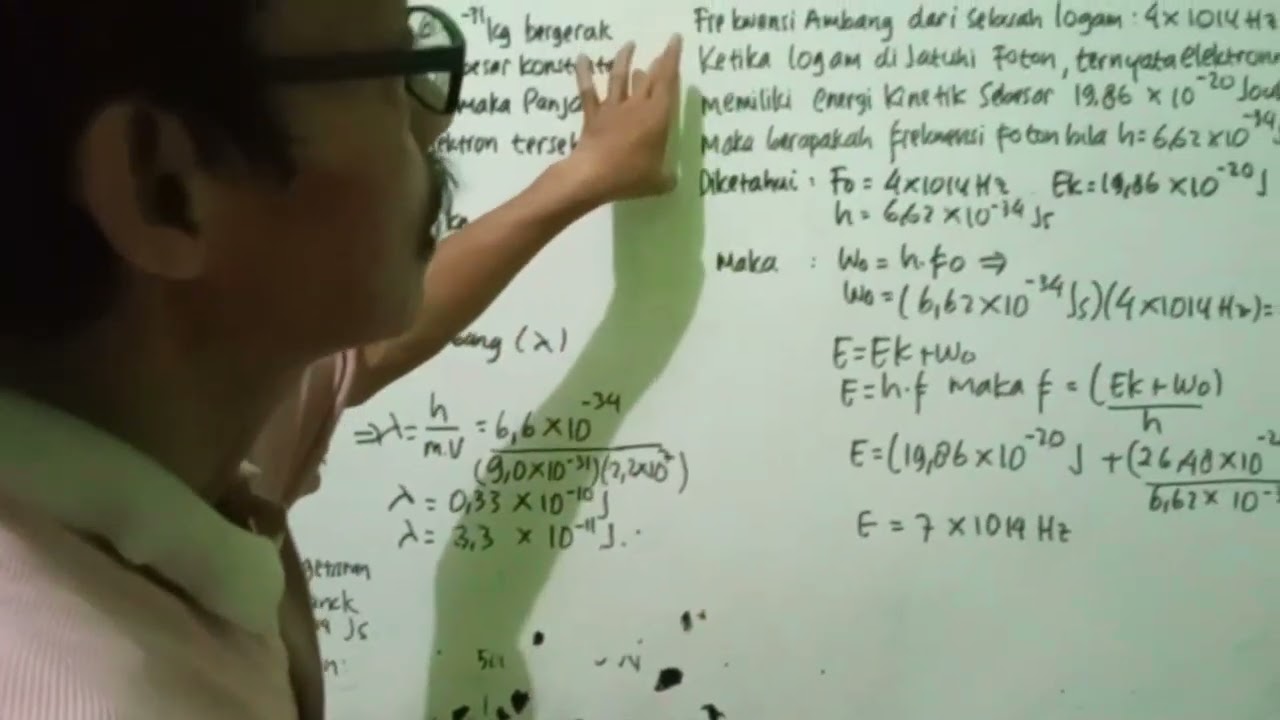 -31 kg bergerak
esar konstanta
maka Panja
ektron terseb
ang (λ)
⇒ λ = h/m.V = 6,6 × 10^-34 / (9,0×10^-31)(2,2×10^7)
λ = 0,33 × 10^-10 J
λ = 3,3 × 10^-11 J.
getaran
anck
Js
n:
Frekuensi Ambang dari sebuah logam : 4 × 1014 Hz
Ketika logam di Jatuhi Foton, ternyata elektron
memiliki energi kinetik Sebesar 19,86 × 10^-20 Jou
Maka berapakah frekuensi foton bila h = 6,62 × 10^-34
Diketahui : Fo = 4×1014 Hz Ek = 19,86 × 10^-20 J
h = 6,62 × 10^-34 Js
Maka : Wo = h.fo ⇒
Wo = (6,62×10^-34 Js)(4×1014 Hz) =
E = Ek + Wo
E = h.f maka f = (Ek + Wo)/h
E = (19,86 × 10^-20 J + (26,48 × 10^-2 / 6,62 × 10^-3
E = 7 × 1014 Hz